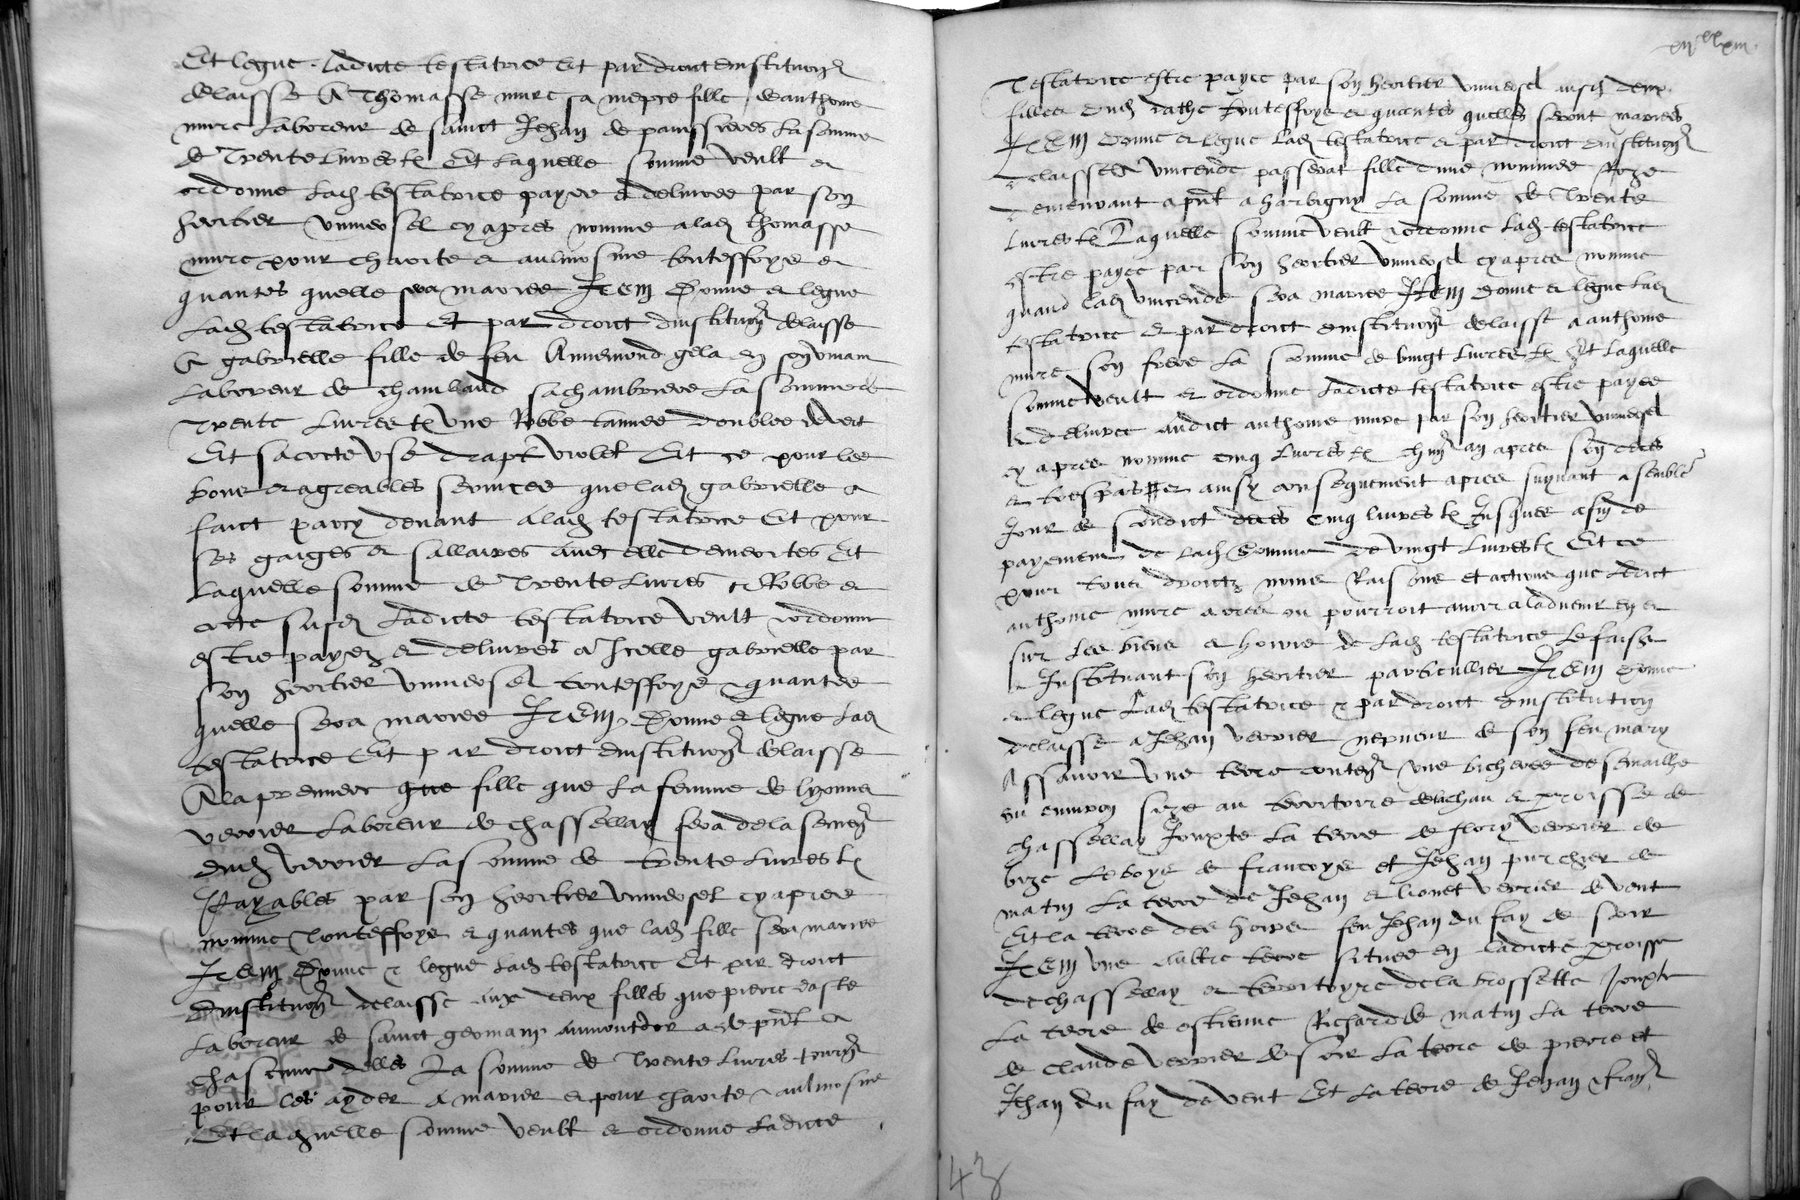 Et legue ladicte testatrice Et par droit dinstitution
delaisse A Thomasse mure sa niepce fille de anthome
mure laboreur de sainct Jehan de panissieres la somme
de Trente livres tz Et laquelle somme veult et
ordonne lad testatrice payee et delivree par son
heritier universel cy apres nomme a lad thomasse
mure pour charite et aulmosne touteffoys et
quantes quelle sera mariee Item Donne et legue
lad testatrice Et par droict dinstitution delaisse
A gabrielle fille de feu Annemond gela
laboreur de chambaud sa chambriere la somme de
Trente livres tz une Robbe tannee doublee de vert
Et sa cotte use drapt violet Et ce pour les
bons et agreables services que lad gabrielle a
faict par cy devant a lad testatrice Et pour
ses gaiges et sallaires avec elle demeorites Et
laquelle somme de Trente livres et Robbe et
cotte susd ladicte testatrice veult et ordonne
estre payez et delivres a Icelle gabrielle par
son heritier universel touteffoys et quantes
quelle sera mariee Item Donne et legue lad
testatrice Et par droict dinstitution delaisse
A la premiere que fille que la femme de lyonnet
verrier laboreur de chassellay fera de la semen
dud verrier la somme de Trente livres tz
Payables par son heritier universel cy apres
nomme Touteffoys et quantes que lad fille sera mariee
Item Donne et legue lad testatrice Et par droict
Dinstitution delaisse aux deux filles que pierre
laboreur de sainct germain aumontdor a de pnt A
chascune delles la somme de Trente livres tourn
pour les ayder a marier et pour charite et aulmosne
Et laquelle somme veult et ordonne ladicte
Testatrice estre payee par son heritier universel ausd deux
filles dud Touteffoys et quantes quelles seront mariees
Item Donne et legue lad testatrice et par droict dinstitution
delaisse A vincende passerat fille dune nommee
demeurant a pnt a harbigny la somme de Trente
livres tz Laquelle somme veult et ordonne lad testatrice
estre payee par son heritier universel cy apres nomme
quand lad vincende sera mariee Item donne et legue lad
testatrice et par droict dinstitution delaisse a anthome
mure son frere la somme de vingt livres tz Et laquelle
somme veult et ordonne ladicte testatrice estre payee
et delivree audict anthome mure par son heritier universel
cy apres nomme cinq livres tz chun an apres son deces
et trespas et ainsy consequement apres suyvant a semble
Jour de sondict deces cinq livres tz Jusques a fin de
payement de lad somme de vingt livres tz Et ce
pour tous droictz noms Raisons et actions que ledict
anthome mure a ores ou pourroit avoir a ladvenir en et
sur les biens et hoirie de lad testatrice le faisant
et Instituant son heritier particullier Item donne
et legue lad testatrice et par droict dinstitution
delaisse a Jehan verrier nepveur de son feu mary
Assavoir une terre conten une bicheree de semailhe
ou environ size au territoire delachau et proisse de
chassellay Jouxte la terre de flory verrier de
bize le boys de francoys et Jehan purchier de
matin la terre de Jehan et lionet verrier de vent
Et la terre des hoirs feu Jehan du fay de soir
Item une aultre terre situee en ladicte proisse
de chassellay et territoyre de la brossette Jouxte
la terre de estienne Richard de matin la terre
de claude verrier de soir la terre de pierre et
Jehan du fay de vent Et la terre de Jehan
43